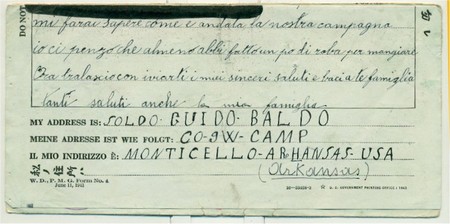 DO NOT
mi farai sapere come è andata la nostra campagna
io ci penzo che almeno abbi fatto un po di roba per mangiare
Ora tralascio con inviarti i miei sinceri saluti e bacia te famiglia
tanti saluti anche la mia famiglia
MY ADDRESS IS: SOLDO-GUIDO BALDO
MEINE ADRESSE IST WIE FOLGT: CO-9W-CAMP
IL MIO INDIRIZZO È: MONTICELLO-ARHANSAS-USA
(arkansas)
W. D., P. M. G. Form No. 4
U. S. GOVERNMENT PRINTING OFFICE